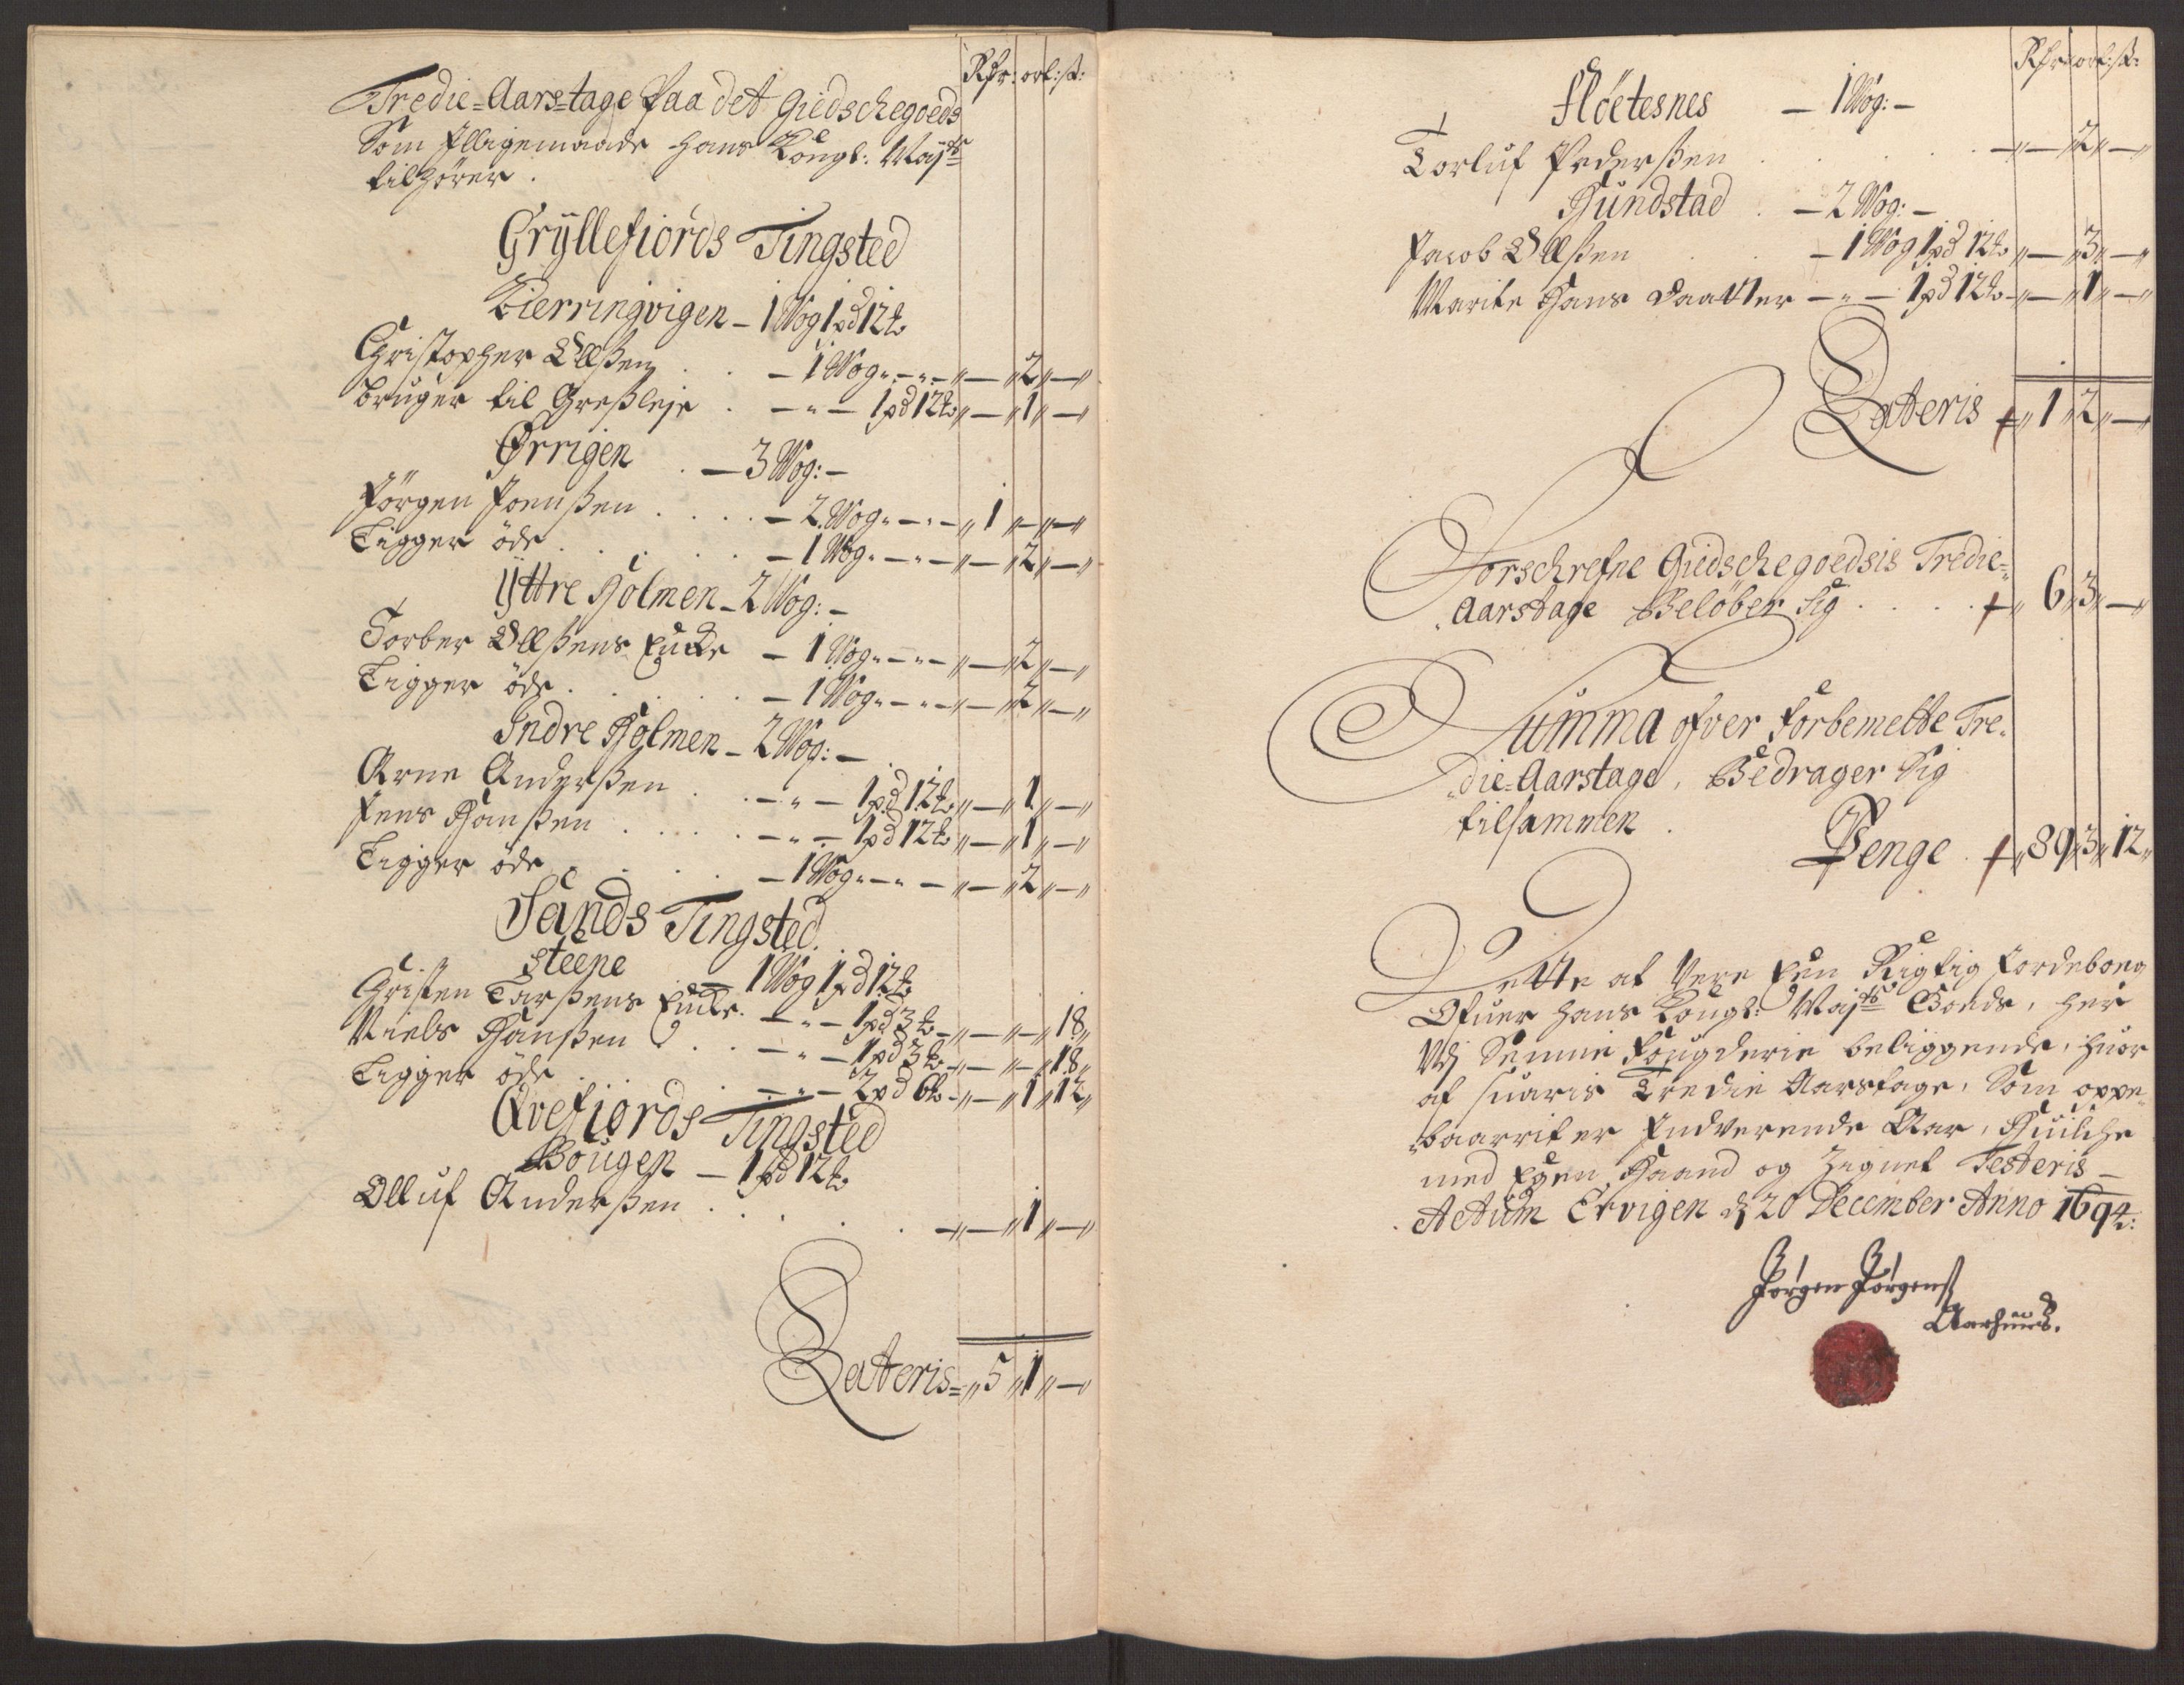 Rdr: ort: ß:
Tredie-Aarstage Paa det Giedschegoeds
Som Jlligemaade Hans Kongl: Mayts
tilhörer.
Gryllefiords Tingsted
Kierringvigen – 1 Wog 1 pd 12 ℔
Christopher Ollßen . . – 1 Wog „ – „ – „ – „ 2 „ – „
bruger til Græsleje . – „ – 1 pd 12 ℔ „ – „ 1 „ – „
Ørrigen . – 3 Wog: –
Jörgen Joenßen . . . . – 2 Wog „ – „ – „ 1 „ – „ – „
Ligger öde . . . . – 1 Wog „ – „ – „ – „ 2 „ – „
Yttre Holmen – 2 Wog: –
Torber Ollßens Encke – 1 Wog „ – „ – „ – „ 2 „ – „
Ligger öde . . . . – 1 Wog „ – „ – „ – „ 2 „ – „
Indre Holmen – 2 Wog: –
Arne Anderßen . . – „ – 1 pd 12 ℔ „ – „ 1 „ – „
Jens Hanßen . . . . – „ – 1 pd 12 ℔ „ – „ 1 „ – „
Ligger öde . . . . – 1 Wog „ – „ – „ – „ 2 „ – „
Sands Tingsted.
Steene – 1 Wog 1 pd 12 ℔
Christen Larßens Encke . – „ – 1 pd 3 ℔ – „ – „ – „ 18 „
Niels Hanßen . . – „ – 1 pd 3 ℔ – „ – „ – „ 18 „
Ligger öde . . . – „ – 2 pd 6 ℔ – „ – „ 1 „ 12 „
Qvefiords Tingsted
Bougen – 1 pd 12 ℔
Olluf Anderßen . . . . – „ – „ 1 „ – „
Lateris = „ 5 „ 1 „ – „
Rdr ort: ß:
Flöetesnes – 1 Wog: –
Torluf Pederßen . . . . – „ – „ 2 „ – „
Hundstad . – 2 Wog: –
Jacob Ollßen . . – 1 Wog 1 pd 12 ℔ „ – „ 3 „ – „
Marite Hans Daatter – „ – 1 pd 12 ℔ – „ – „ 1 „ – „
Lateris „ 1 „ 2 „ – „
Forschrefne Giedschegoedsis Tredie-
Aarstage Belöber Sig . . . . „ 6 „ 3 „ – „
Summa ofver Forbemelte Tre-
die-Aarstage, Bedrager Sig
tilsammen .
Penge . „ 89 „ 3 „ 12 „
Dette at Vere Een Rigtig Jordebong
Ofuer Hans Kongl: Mayts Goeds, her
Udj Sennie Fougderie beliggende, huor
af suaris Tredie Aarstage, Som oppe-
baarrit er Indverende Aar, Huilche
med Egen Haand og Zignet Testeris –
Actum Ervigen d. 20 December Anno 1694:
Jörgen Jörgenß
Aarhuus.